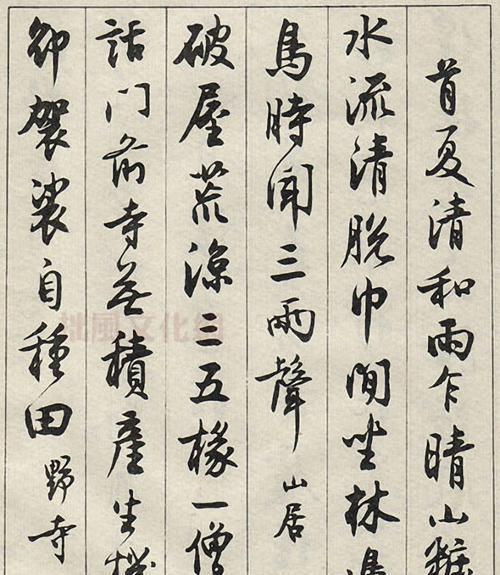 首夏清和雨乍晴山
水流清脱巾閒坐林
鳥時聞三兩聲 山居
破屋荒涼三五椽一僧
話门前寺無積產生
卸袈裟自種田 野寺
拙風文化網